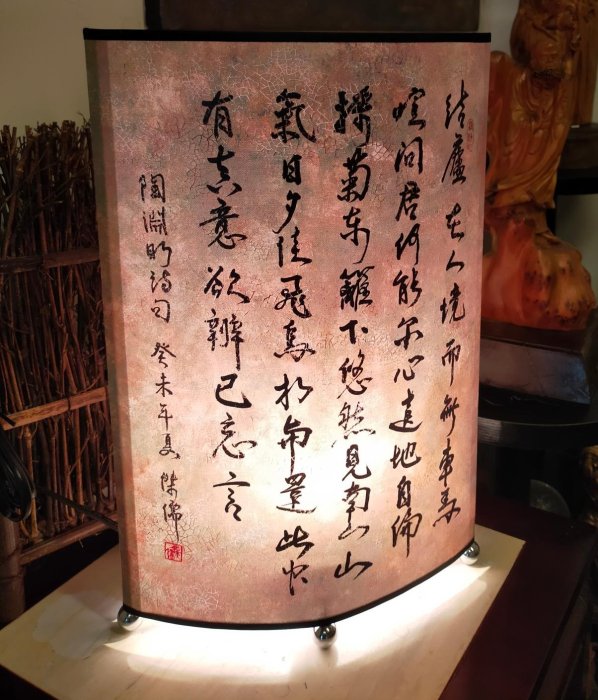 結廬在人境而無車馬
喧問君何能尔心遠地自偏
採菊東籬下悠然見南山山
氣日夕佳飛鳥相與還此中
有真意欲辨已忘言
陶淵明詩句 癸未年夏 陳儒